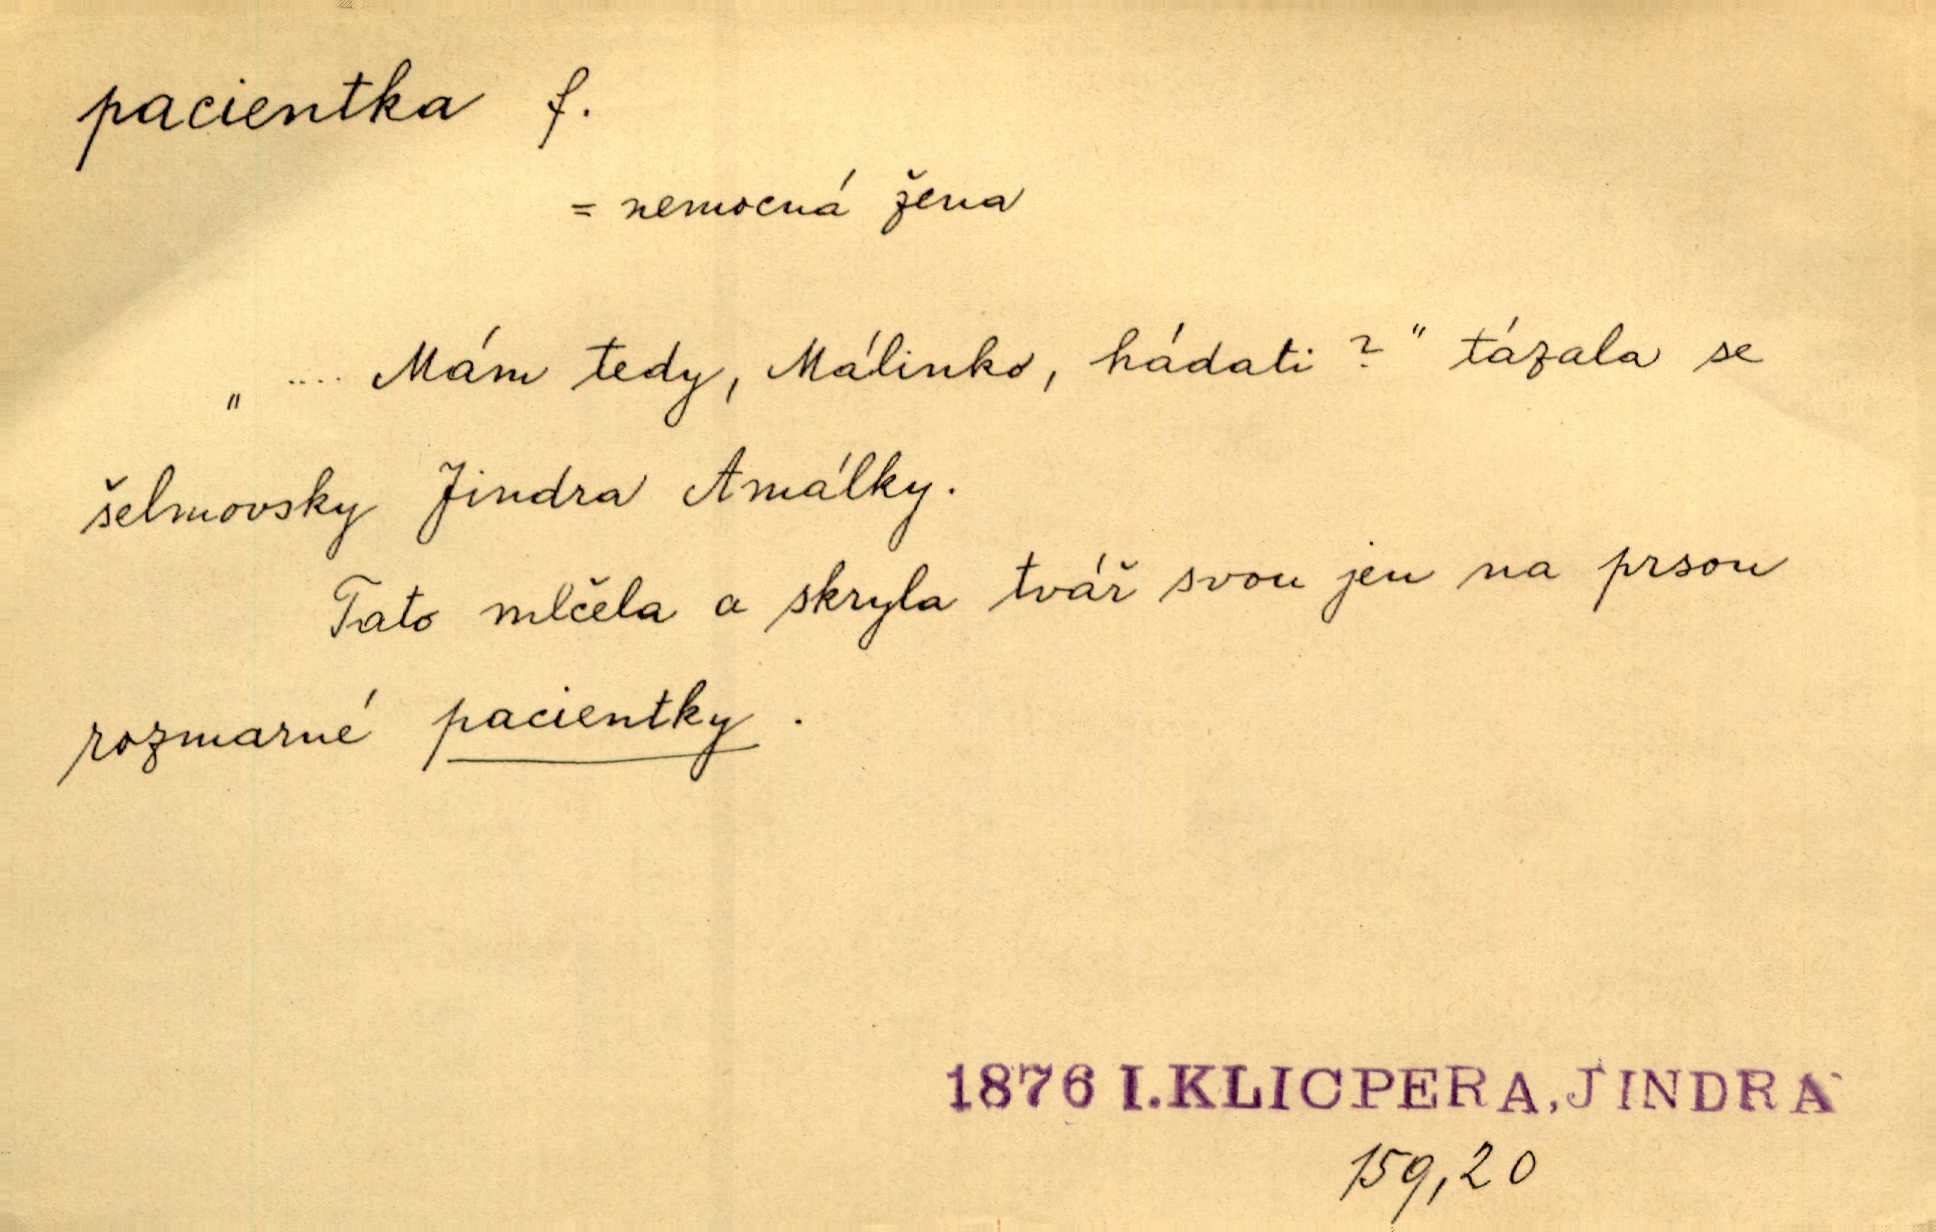 pacientka f.
= nemocná žena
„ .... Mám tedy, Málinko, hádati?" tázala se
šelmovsky Jindra Amálky.
Tato mlčela a skryla tvář svou jen na prsou
rozmarné pacientky.
1876 I.KLICPERA, JINDRA
159,20